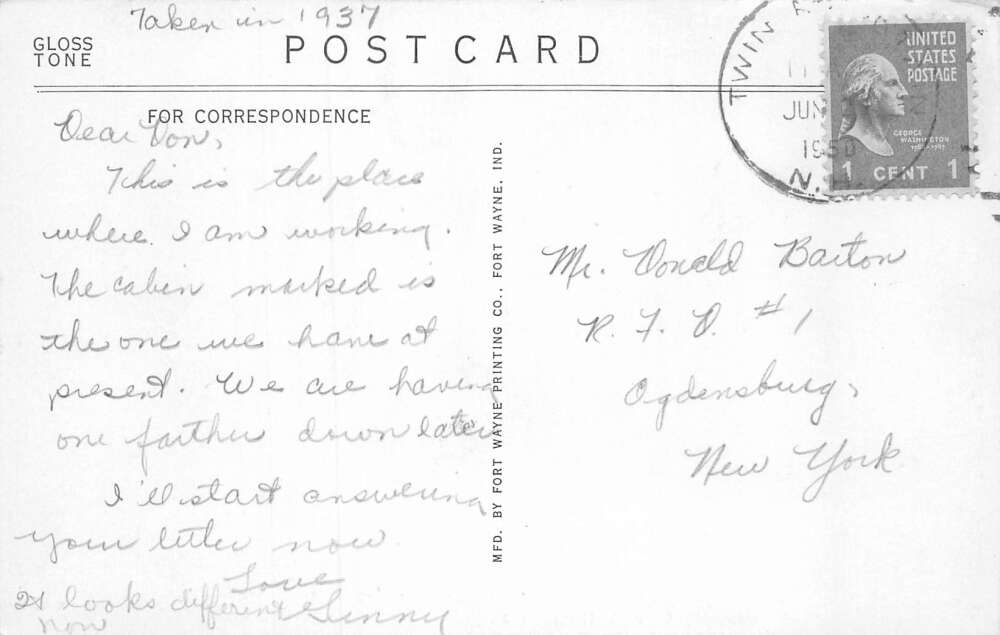 Taken in 1937
GLOSS
TONE
POST CARD
FOR CORRESPONDENCE
Dear Don,
This is the place
where I am working.
The cabin marked is
the one we have at
present. We are having
one farther down later
I'll start answering
your letter now
Love
Ginny
It looks different
now
MFD. BY FORT WAYNE PRINTING CO., FORT WAYNE, IND.
TWIN
JUN
1950
N.
UNITED
STATES
POSTAGE
GEORGE
WASHINGTON
1 CENT 1
Mr. Donald Barton
R. F. D. #1
Ogdensburg,
New York